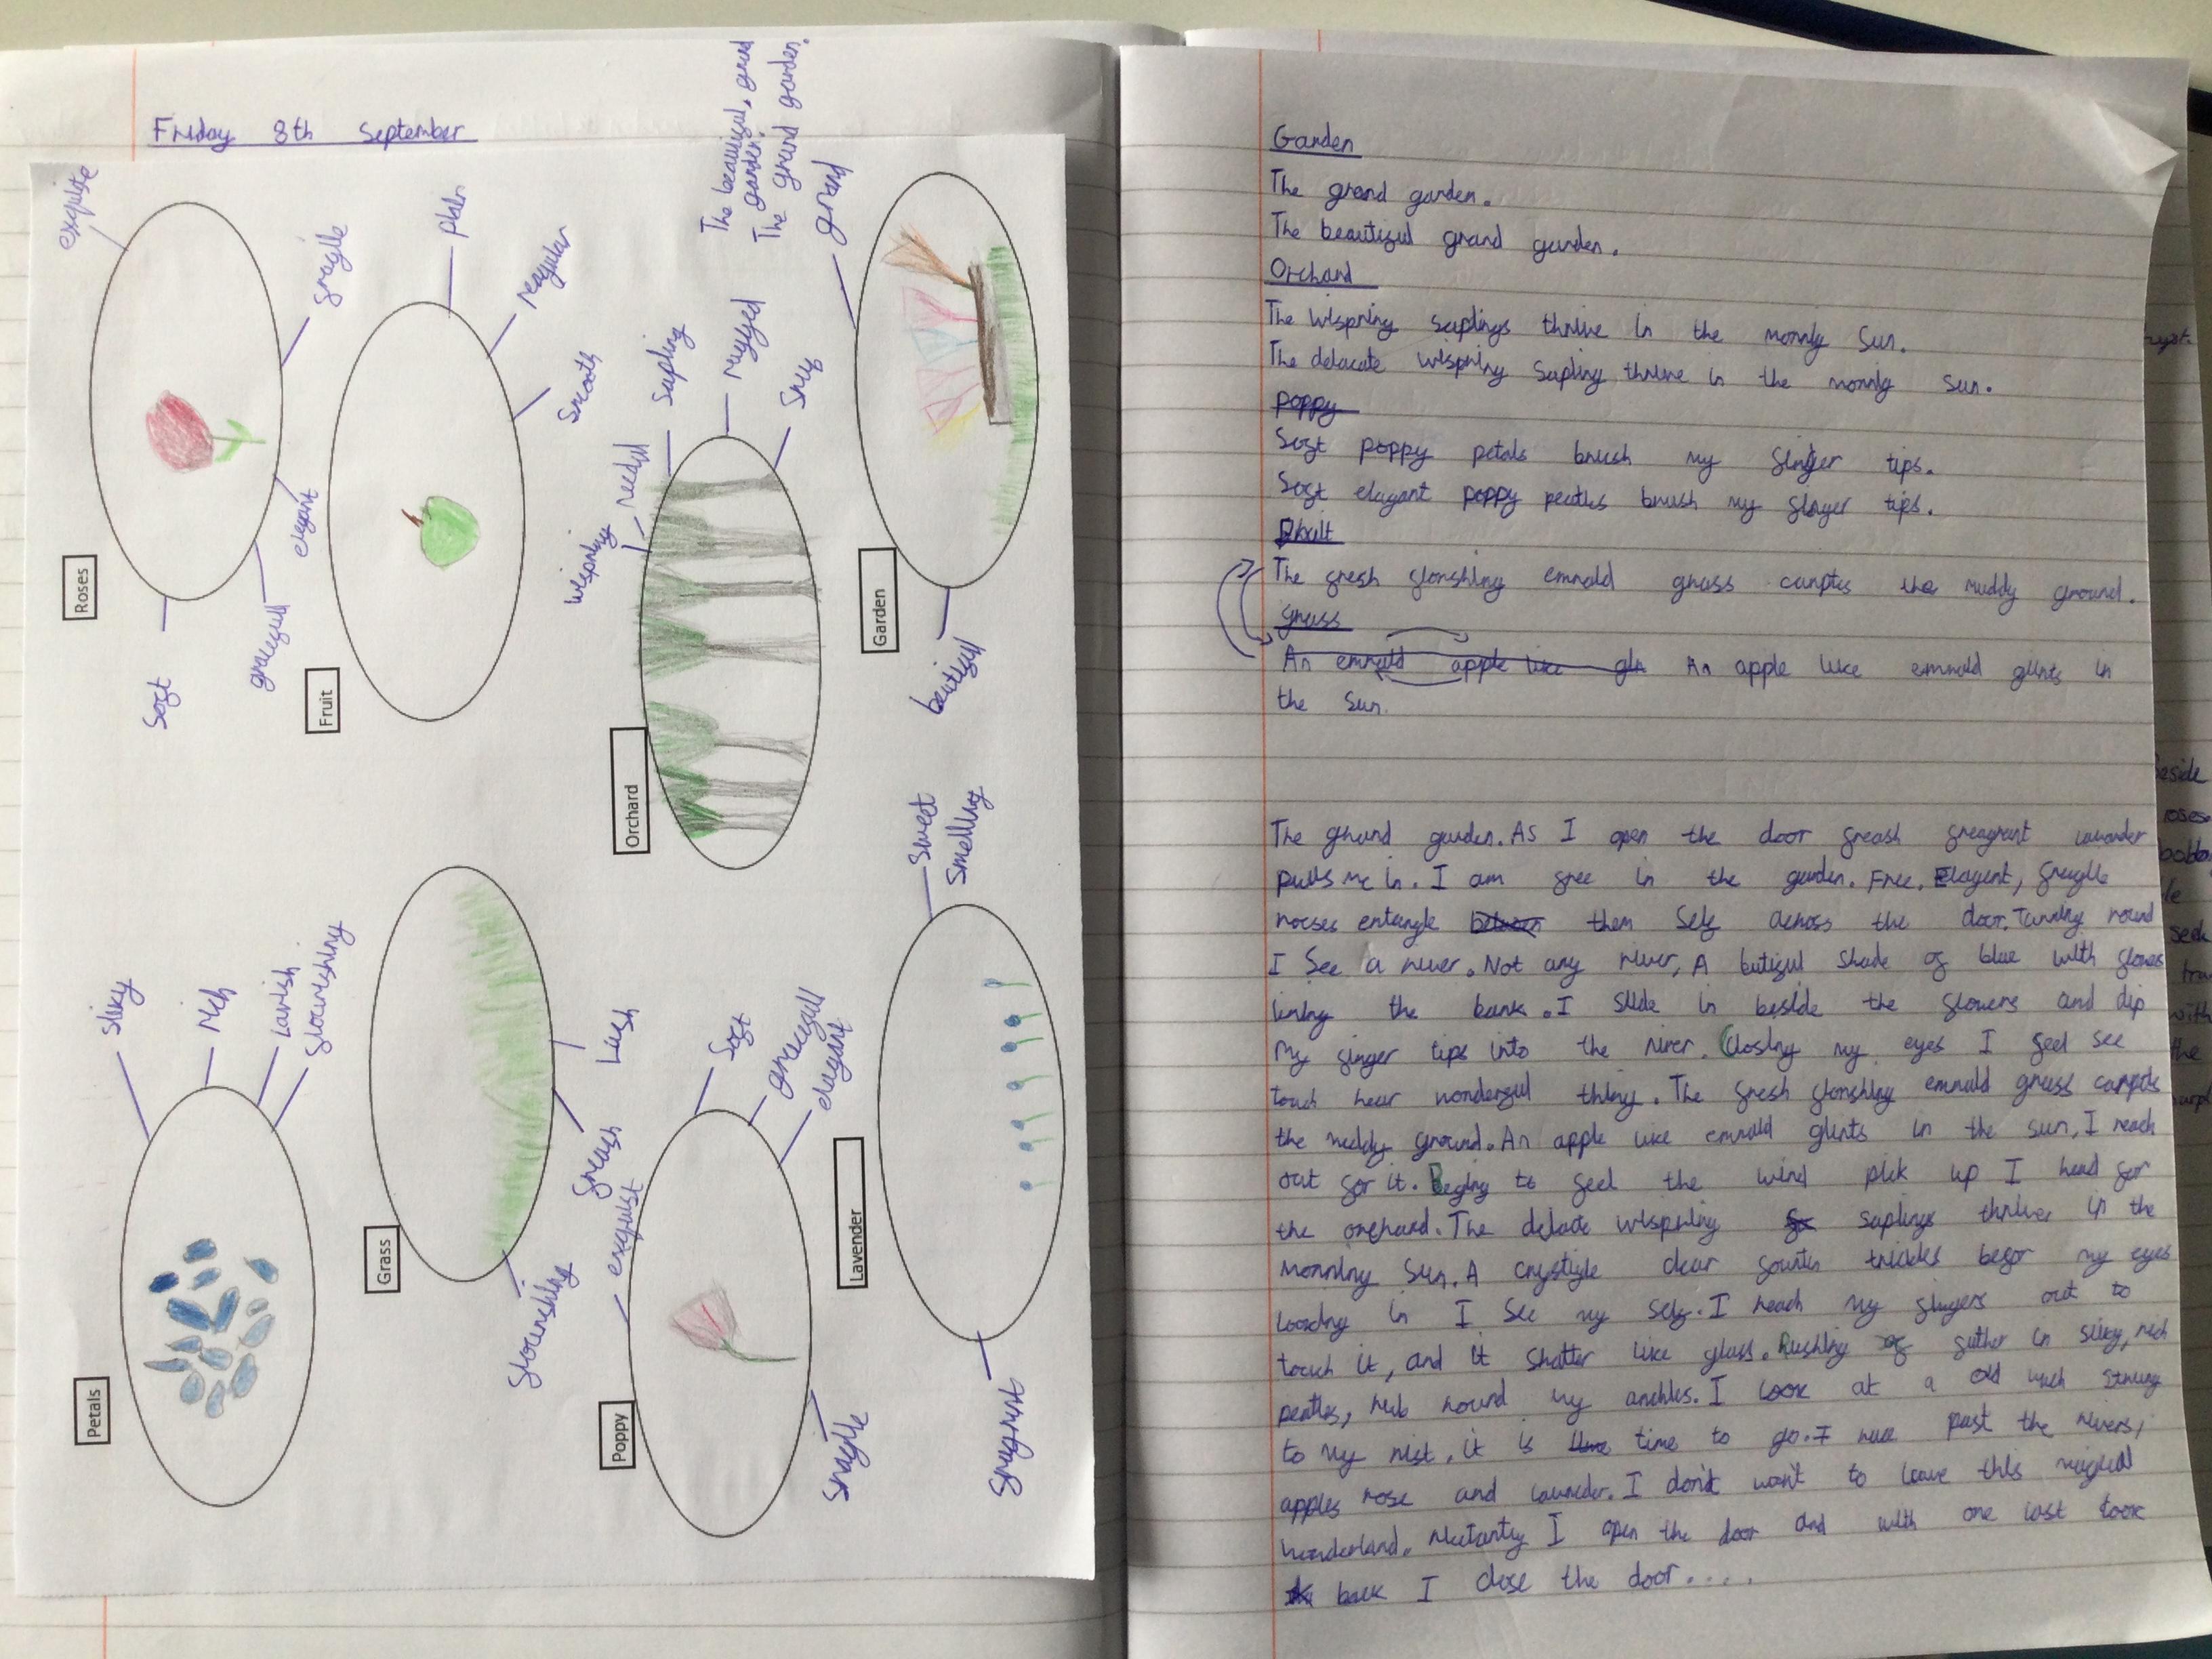 Friday 8th September
Roses
exqusite
fragile
elegant
gracefull
Soft
Fruit
plain
reagular
Smooth
Orchard
wispring
needed
Sapling
rugged
Snug
Garden
The beautigul, grand
garden.
The grand garden.
grand
beutiful
Petals
sliky
rich
Lavish
flourishing
Grass
Lush
freash
flourishing
Poppy
exequist
Soft
gracefull
elagant
fragile
Lavender
Sweet
Smelling
fragrant
Garden
The grand garden.
The beautiful grand garden.
Orchard
The wispring saplings thrive in the monnly Sun.
The delacate wispring Sapling thrive in the monnly sun.
poppy
Soft poppy petals brush my finger tips.
Soft elagant poppy peatles brush my finger tips.
The fresh florshing emrald grass carptes the muddy ground.
grass
An emrald apple like gli An apple like emrald glints in
the sun.
The grand garden. As I open the door freash freagrant lavander
pulls me in. I am free in the garden. Free. Elagent, fragile
rorses entangle between them self across the door. Turning round
I See a river. Not any river, A butiful shade of blue with flowes
lining the bank. I slide in beside the flowers and dip
my finger tips into the river. Closing my eyes I feel see
touch hear wonderful thing. The fresh florshing emrald grass carpts
the muddy ground. An apple like emrald glints in the sun, I reach
out for it. Beging to feel the wind pick up I head for
the orchard. The delacte wispring saplings thrives in the
Morning Sun. A crystigle clear fountin trickles befor my eyes
looking in I See my self. I reach my fingers out to
touch it, and it shatter like glass. Rushing of futher in silky, rich
peatles, rub round my anckles. I look at a old wach strung
to my rist, it is time time to go. I past the rivers,
apples rose and lavender. I don't wan't to leave this magical
wonderland. Reluctantly I open the door and with one last look
back I close the door....